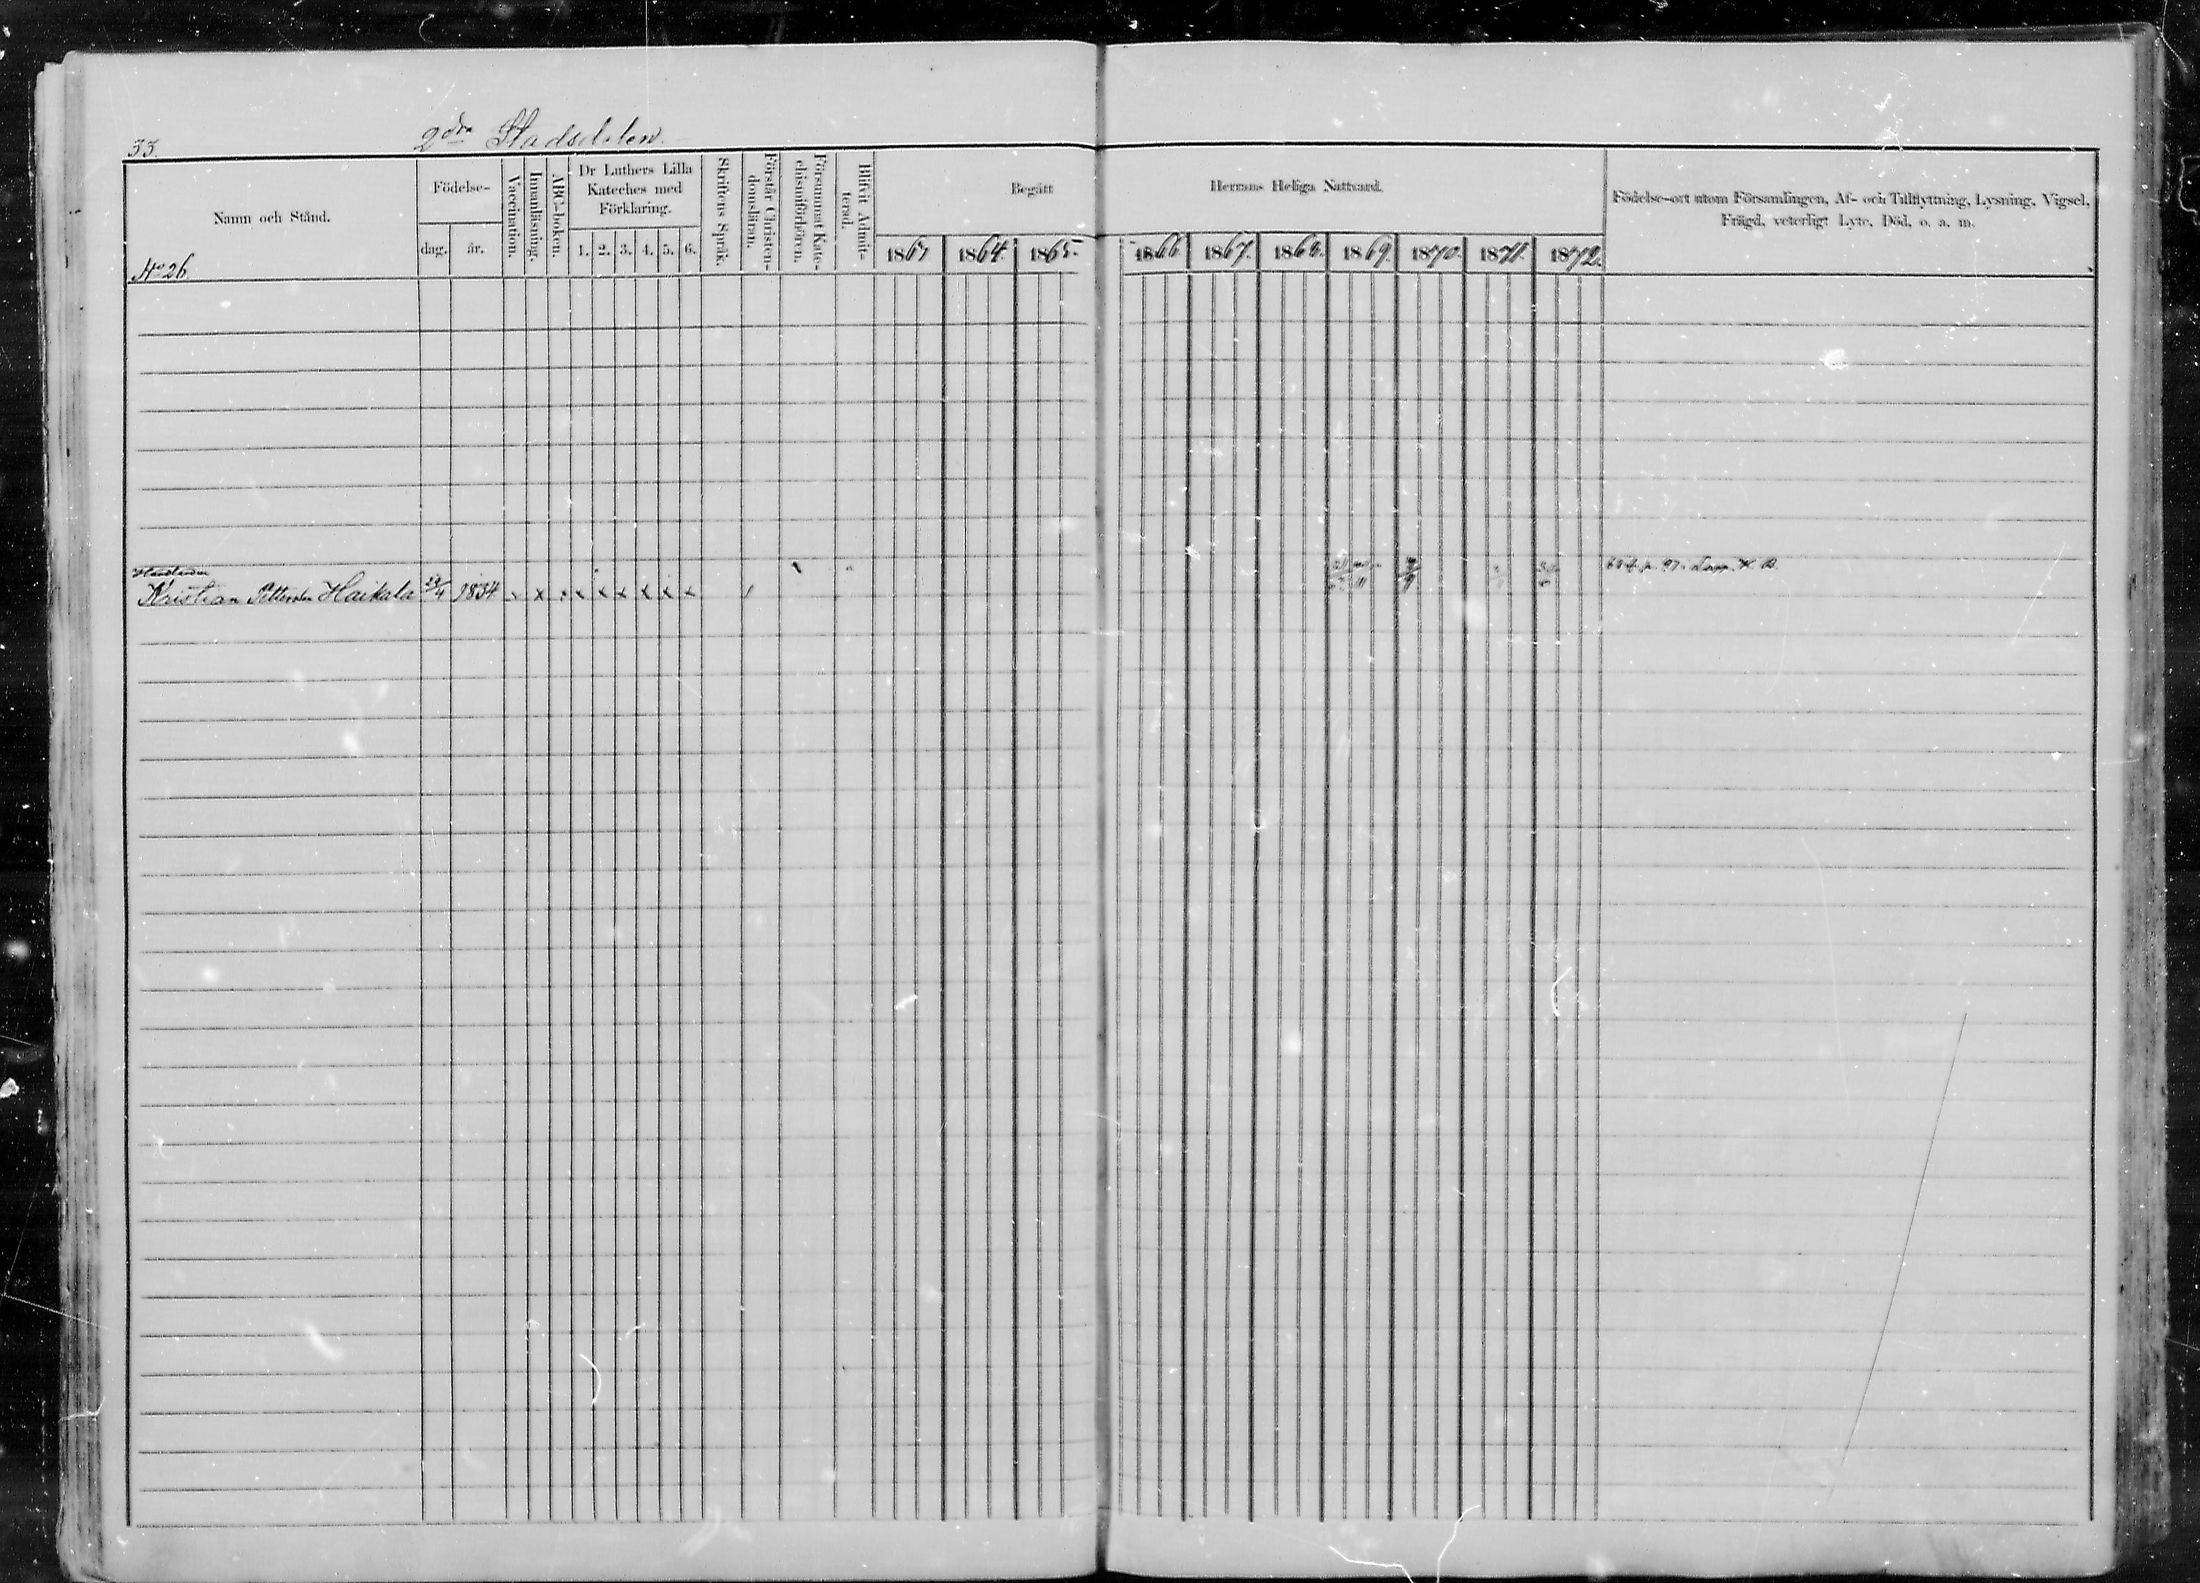 33.
2dra Stadsdelen.
Namn och Stånd.
Födelse-
dag.
år.
Vaccination.
Innanläsning.
ABC-boken.
Dr Luthers Lilla
Kateches med
Förklaring.
1. 2. 3. 4. 5. 6.
Skriftens Språk.
Förstår Christen-
domsläran.
Försummat Kate-
chismiförhören.
Blifvit Admit-
terad.
Begått Herrans Heliga Nattvard.
1863 1864. 1865. 1866 1867. 1868. 1869. 1870. 1871. 1872.
Födelse-ort utom Församlingen, Af- och Tillflyttning, Lysning, Vigsel,
Frägd, veterligt Lyte, Död, o. a. m.
No 26
Kristian Petterson Haikala 1834. x x x x x x x